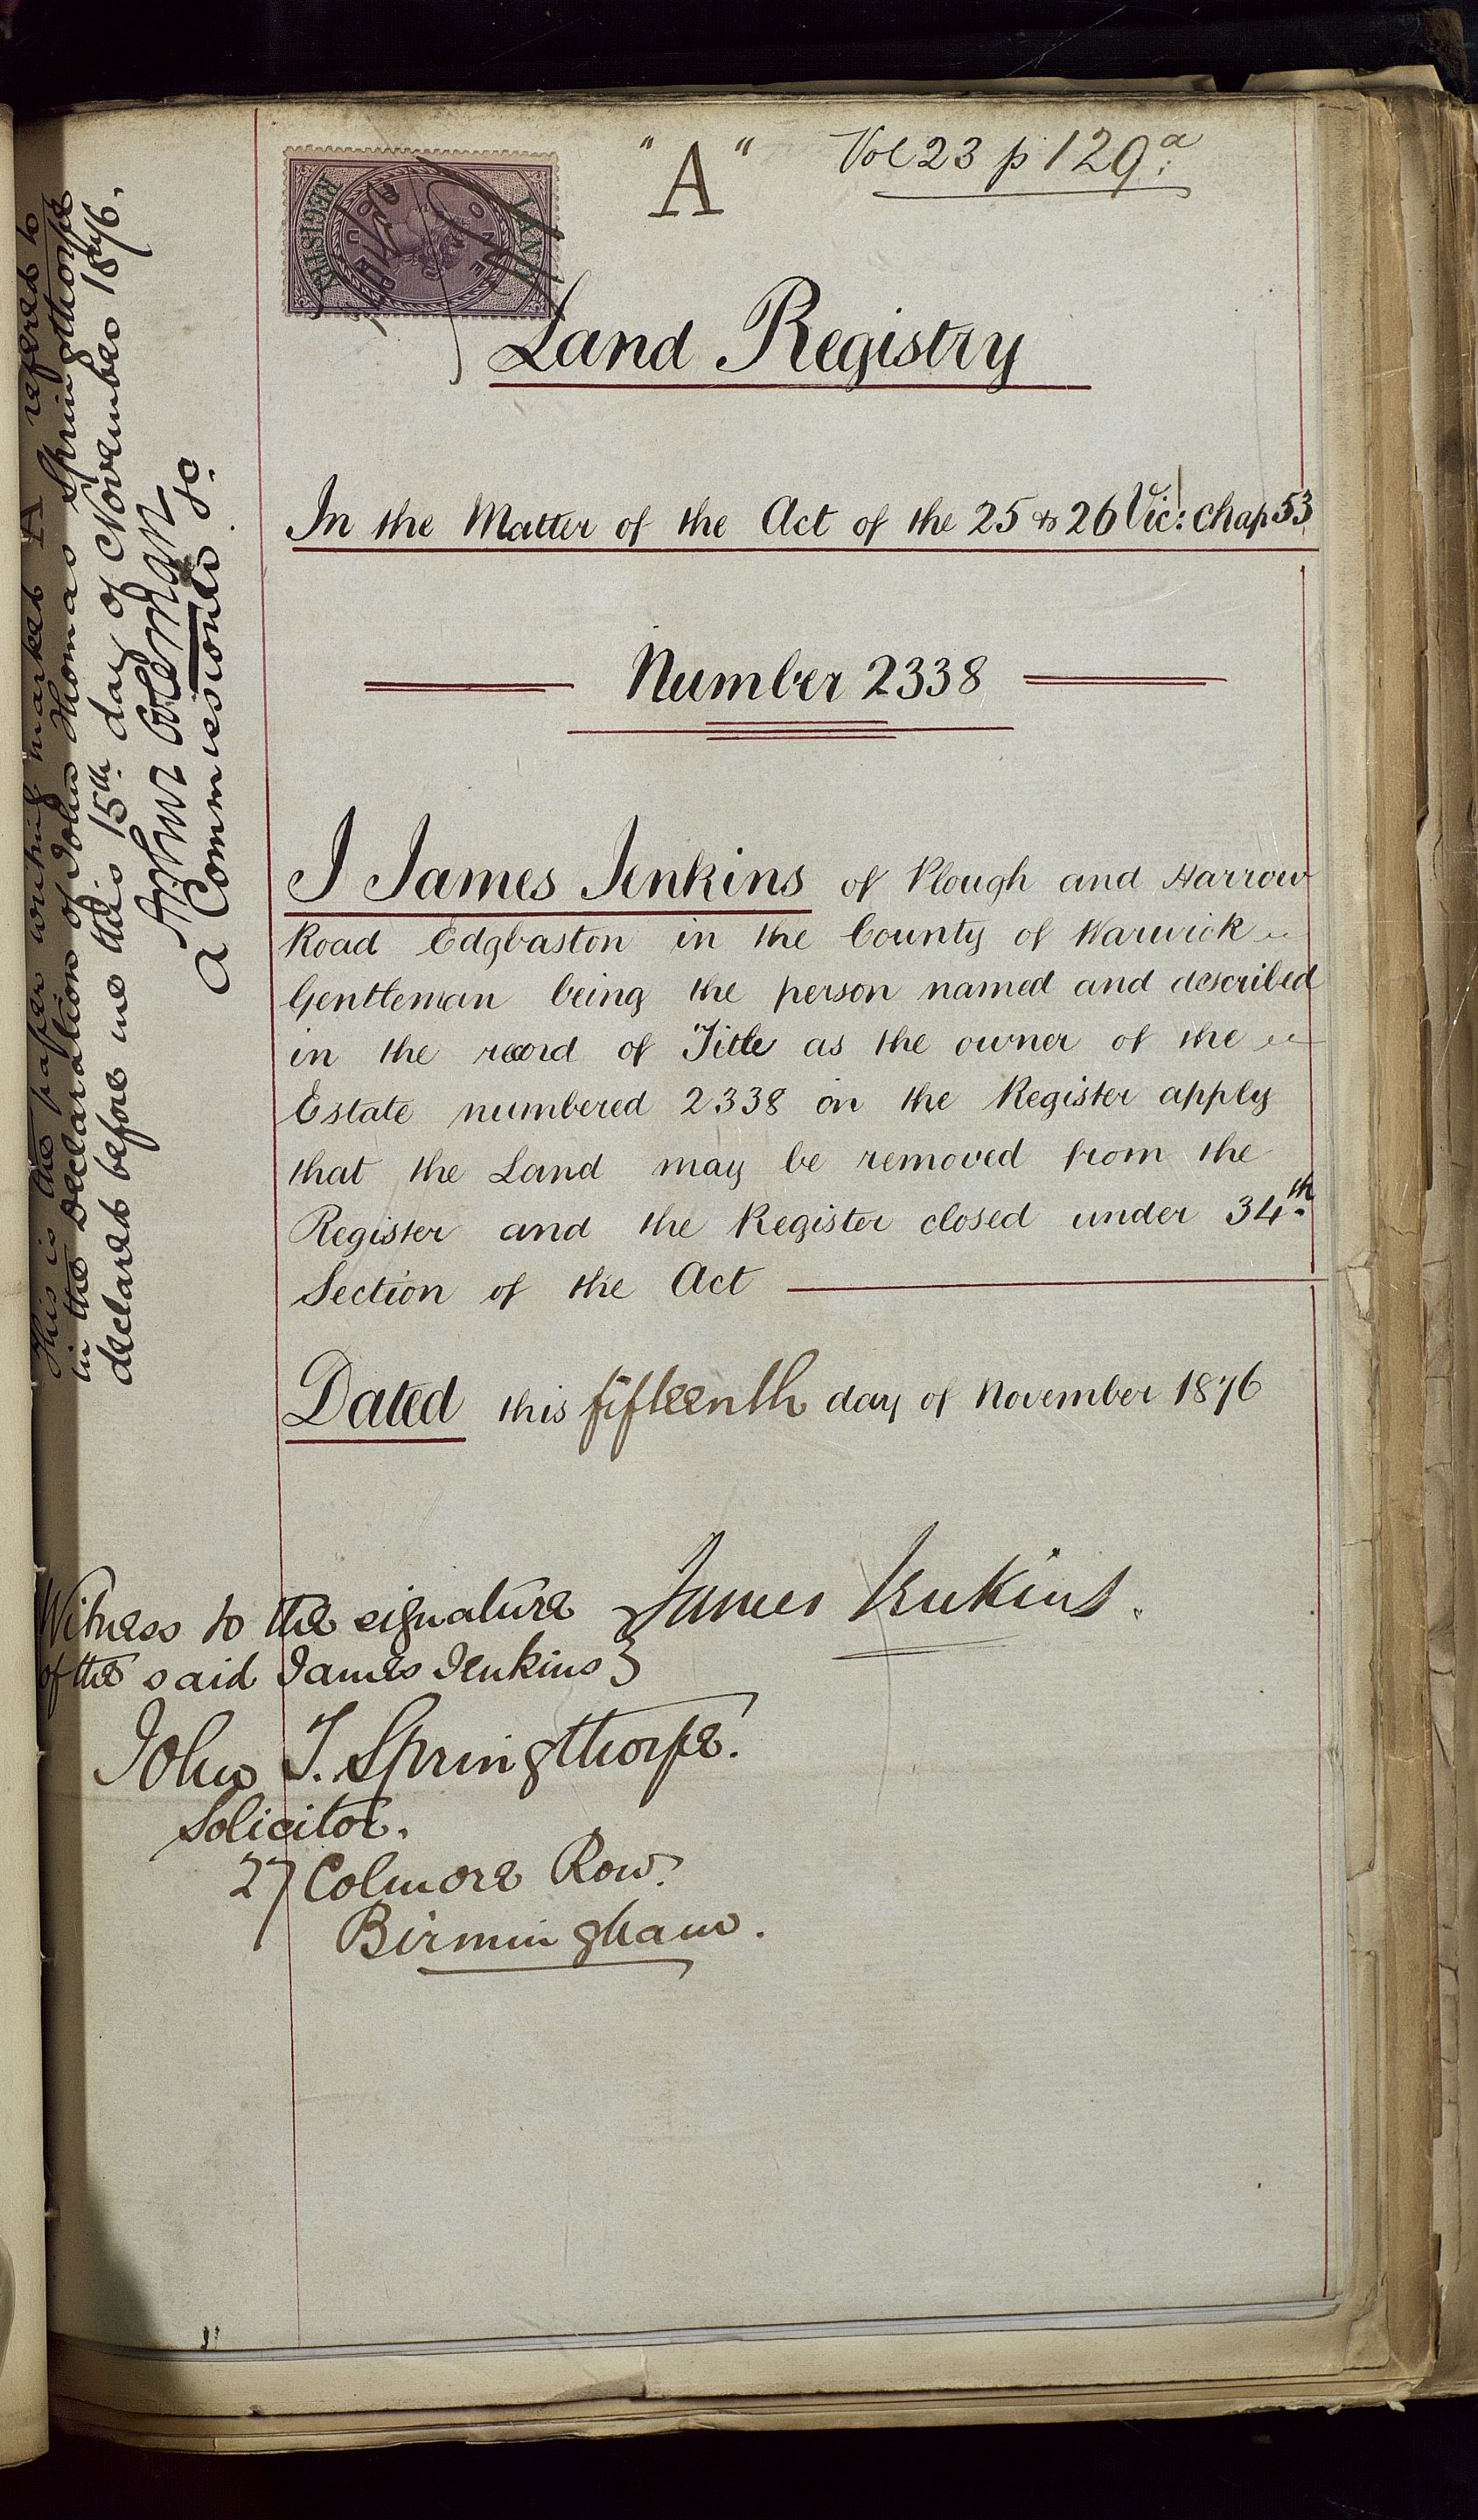 "A" Vol 23 p 129a
LAND REGISTRY
ONE
Land Registry
In the Matter of the Act of the 25 & 26 Vic: chap 53
Number 2338
I James Jenkins of Plough and Harrow
Road Edgbaston in the County of Warwick
Gentleman being the person named and described
in the record of Title as the owner of the
Estate numbered 2338 on the Register apply
that the Land may be removed from the
Register and the Register closed under 34th
Section of the Act
Dated this fifteenth day of November 1876
Witness to the signature James Jenkins.
of the said James Jenkins }
John T. Springthorpe.
Solicitor.
27 Colmore Row.
Birmingham.
This is the paper writing marked A refered to
in the Declaration of John Thomas Springthorpe
declared before me this 15th day of November 1876.
Arthur Coleman
A Commissioner &c.